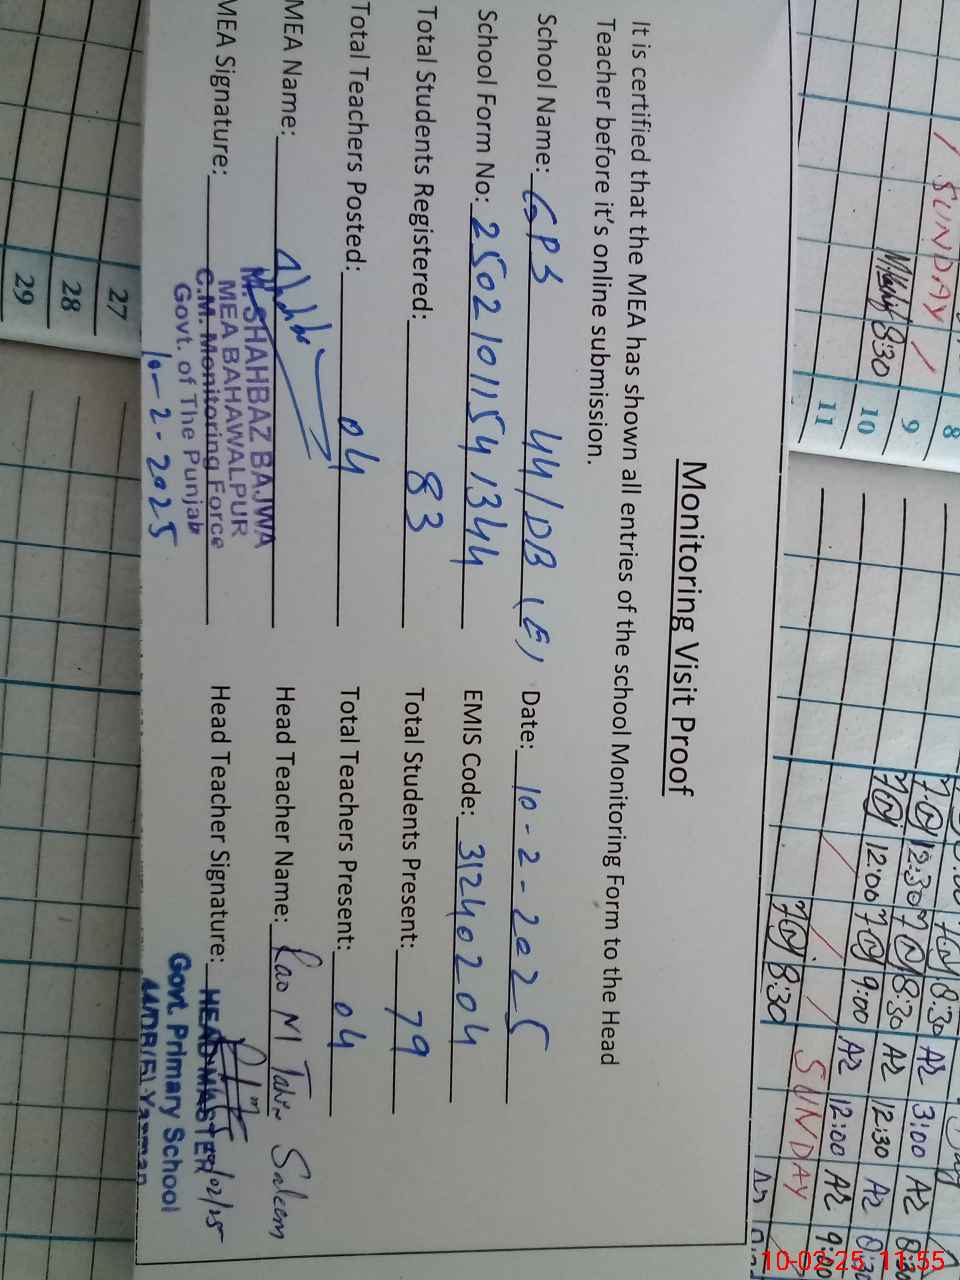 Monitoring Visit Proof
It is certified that the MEA has shown all entries of the school Monitoring Form to the Head
Teacher before it's online submission.
School Name: GPS 44/DB (E) Date: 10-2-2025
School Form No: 25021011541344 EMIS Code: 31240204
Total Students Registered: 83 Total Students Present: 79
Total Teachers Posted: 04 Total Teachers Present: 04
MEA Name: Head Teacher Name: Rao M Tahir Saleem
MEA Signature: Head Teacher Signature:
M. SHAHBAZ BAJWA
MEA BAHAWALPUR
C.M. Monitoring Force
Govt. of The Punjab
10-2-2025
HEAD MASTER
/02/25
Govt. Primary School
44/DB(E) Yazman
SUNDAY
8:30
8
9
10
11
27
28
29
8:30 AR 3:00 AR 8:30
12:30 8:30 AR 12:30 AR 8:30
12:00 9:00 AR 12:00 AR 9:00
SUNDAY
8:30
10-02-25 11:55